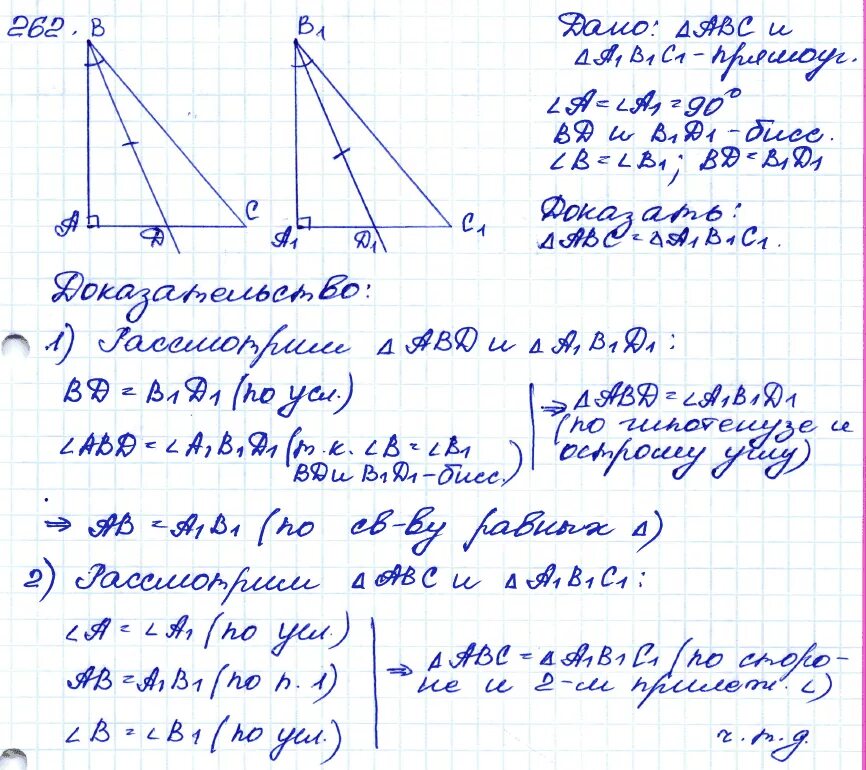 262. B B₁ Дано: △ABC и
△A₁B₁C₁ - прямоуг.
∠A = ∠A₁ = 90°
BD и B₁D₁ - бисс.
∠B = ∠B₁; BD = B₁D₁
A D C A₁ D₁ C₁
Доказать:
△ABC = △A₁B₁C₁.
Доказательство:
1) Рассмотрим △ABD и △A₁B₁D₁:
BD = B₁D₁ (по усл.)
∠ABD = ∠A₁B₁D₁ (т.к. ∠B = ∠B₁
BD и B₁D₁ - бисс.)
⇒ △ABD = ∠A₁B₁D₁
(по гипотенузе и
острому углу)
⇒ AB = A₁B₁ (по св-ву равных △)
2) Рассмотрим △ABC и △A₁B₁C₁:
∠A = ∠A₁ (по усл.)
AB = A₁B₁ (по п. 1)
∠B = ∠B₁ (по усл.)
⇒ △ABC = △A₁B₁C₁ (по сторо-
не и 2-м прилеж. ∠)
ч.т.д.